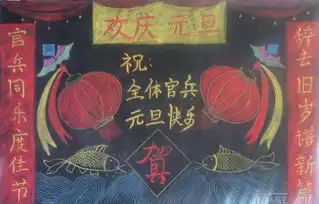 欢庆 元旦
官兵同乐度佳节
辞去旧岁谱新篇
祝:
全体官兵
元旦快乐
賀